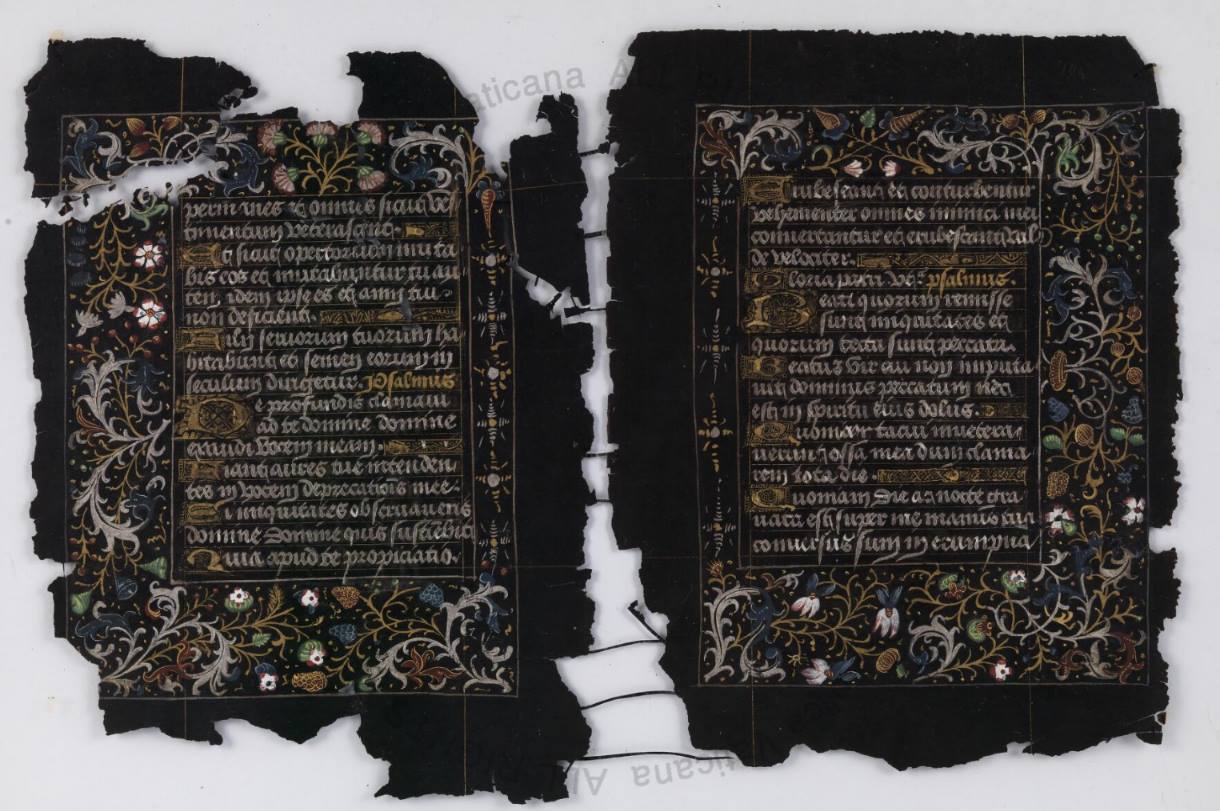 perm nes et omnes sicut ves
timentum veterascent.
Et sicut opertorium muta
bis eos et mutabuntur tu au
tem idem ipse es et anni tui
non deficient.
Filij servorum tuorum ha
bitabunt et semen eorum in
seculum dirigetur. Psalmus
De profundis clamavi
ad te domine domine
exaudi vocem meam.
Fiant aures tue intenden
tes in vocem deprecationis mee.
Si iniquitates observaveris
domine domine quis sustinebit
Quia apud te propiciatio.
Erubescant et conturbentur
vehementer omnes inimici mei
convertantur et erubescant val
de velociter.
Gloria patri psalmus.
Beati quorum remisse
sunt iniquitates et
quorum tecta sunt peccata.
Beatus vir cui non imputa
vit dominus peccatum nec
est in spiritu eius dolus.
Quoniam tacui invetera
verunt ossa mea dum clama
rem tota die.
Quoniam die ac nocte gra
vata est super me manus tua
conversus sum in erumpna
aticana
aticana